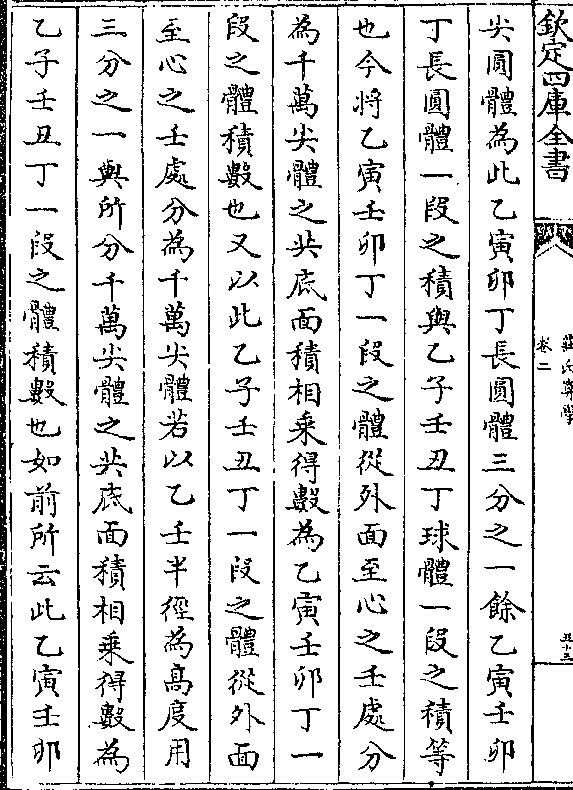 欽定四庫全書
莊氏算學
卷二
五十三
尖圓體為此乙寅卯丁長圓體三分之一餘乙寅壬卯
丁長圓體一段之積與乙子壬丑丁球體一段之積等
也今將乙寅壬卯丁一段之體從外面至心之壬處分
為千萬尖體之共底面積相乗得數為乙寅壬卯丁一
段之體積數也又以此乙子壬丑丁一段之體從外面
至心之壬處分為千萬尖體若以乙壬半徑為髙度用
三分之一與所分千萬尖體之共底面積相乗得數為
乙子壬丑丁一段之體積數也如前所云此乙寅壬卯